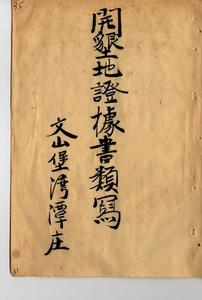 開墾地證據書類寫
文山堡湾潭庄
35